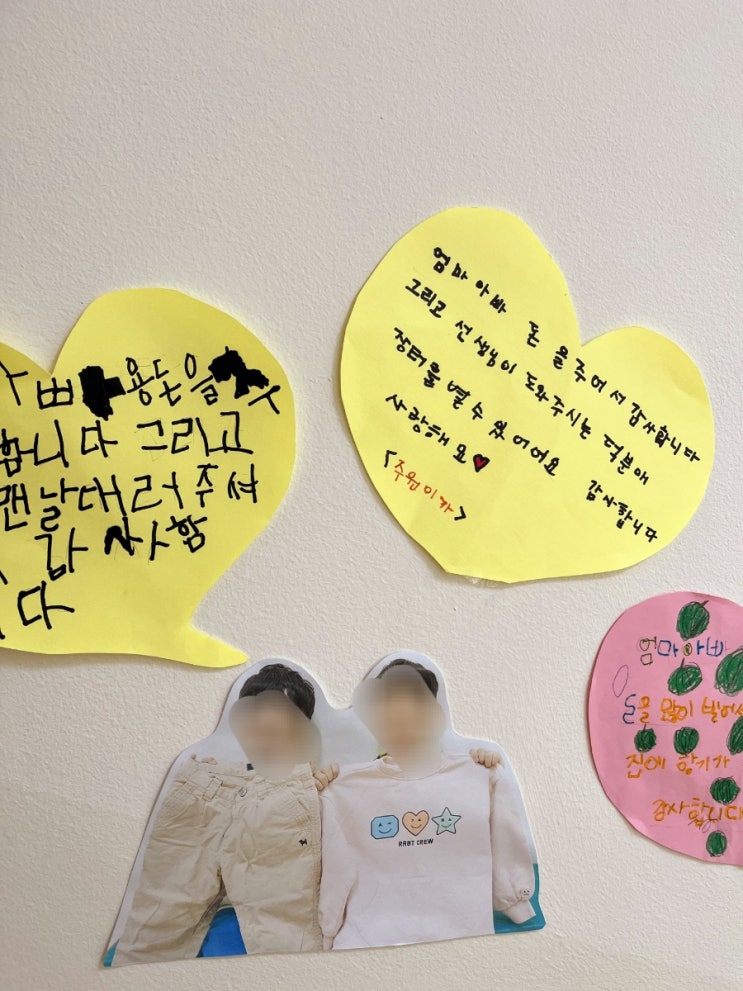 용돈을
합니다 그리고
맨날 데러주셔
감사함
니다
엄마 아빠 돈을 주어서 감사합니다
그리고 선생님이 도와주시는 덕분애 감사합니다
장터를 열 수 있어어요
사랑해요
<주원이가>
엄마아빠
돈을 많이 벌어서
집에 향기가
감사합니다
RABT CREW